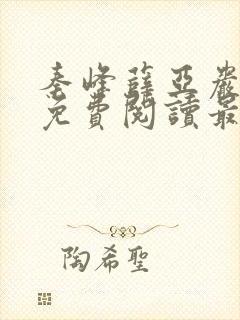 秦峰薛亞嚴
免費閱讀最
陶希聖